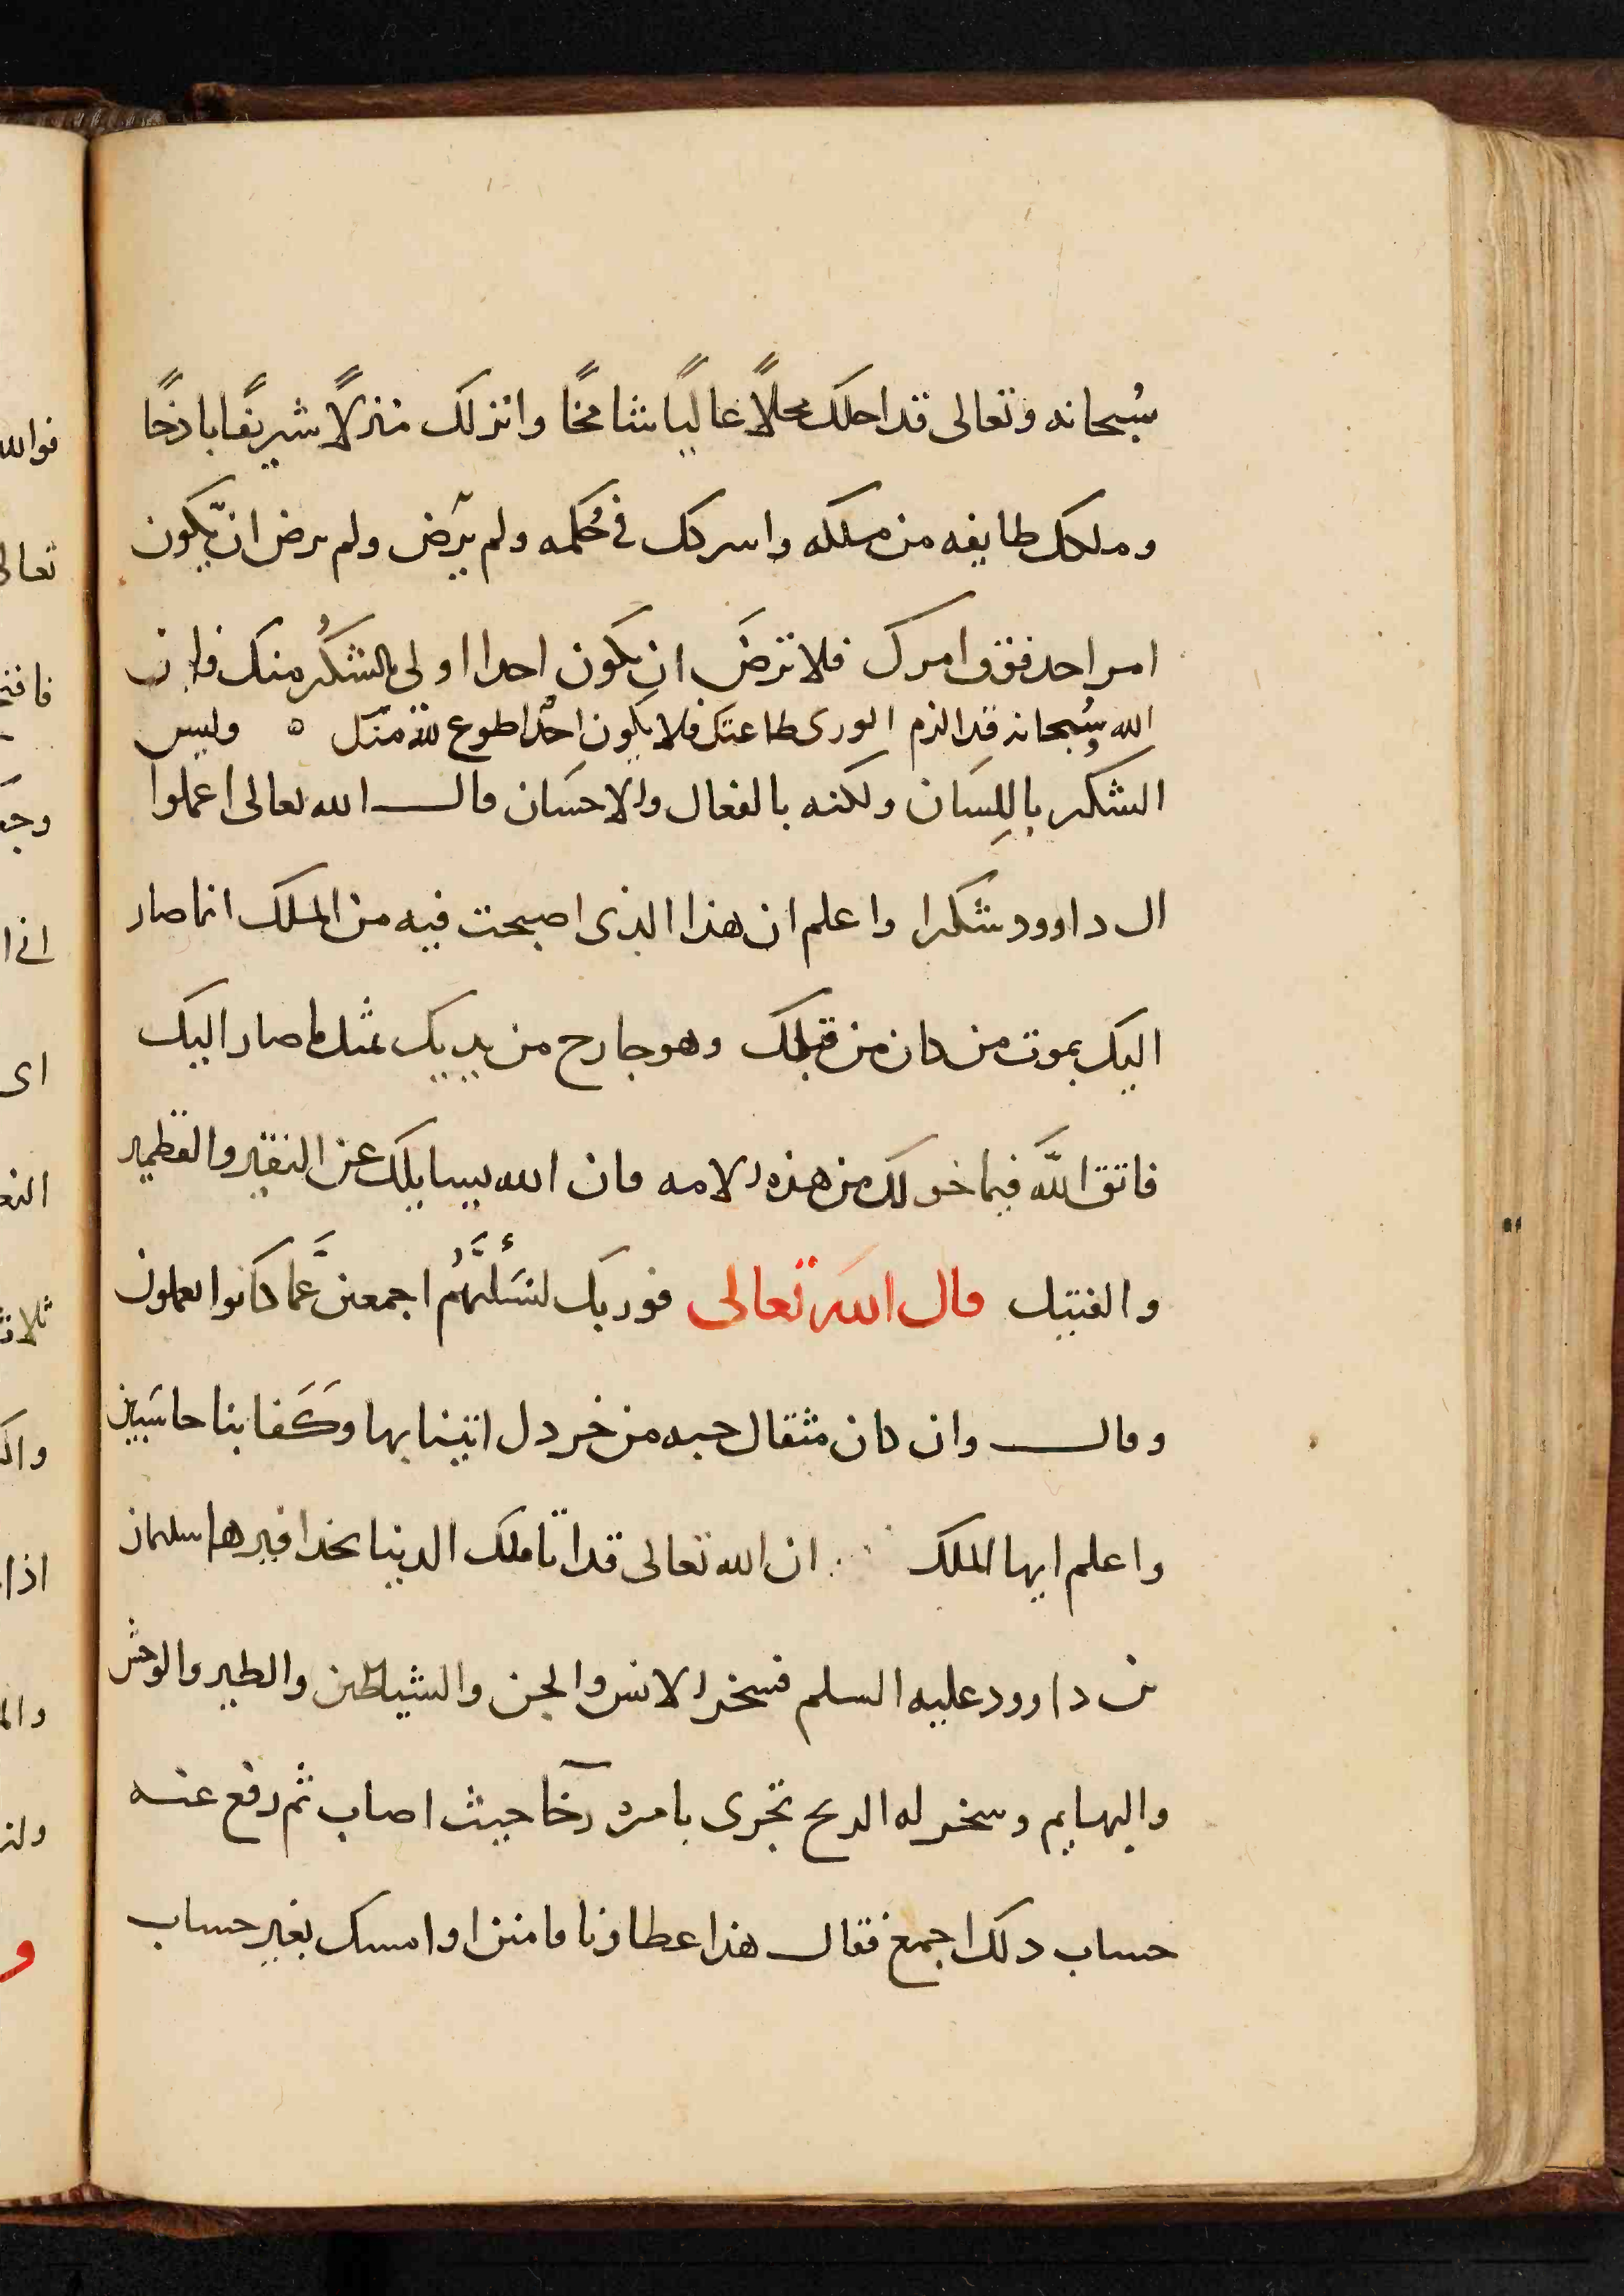 سُبحانه وتعالى قد احلك محلاً عاليًا شامخًا وانزلك منزلاً شريفًا باذخًا
وملكك طايفه من ملكه واسركك في حُكمه ولم يرض ولم يرض ان يكون
امر احد فوق امرك فلا ترضَ ان يكون احدا اولى بالشكُر منك وان
الله سُبحانه قد الزم الورى طاعتك فلا يكون احدًا اطوع لله منك ٥ وليس
الشكر باللِسَان ولكنه بالفعال والاحسَان قال الله تعالى اعملوا
ال داوود شكرا واعلم ان هذا الذى اصبحت فيه من الملك انما صار
اليك بموت من كان من قبلك وهو خارج من يديك بمثل ما صار اليك
فاتق اللَّه فيما خولك من هذه الامه فان الله يسايلك عن النقير والقطمير
والفتيل قال الله تعالى فوربك لنسَئلنَّهُم اجمعين عَمَّا كانوا يعملون
وقال وان كان مثقال حبه من خردل اتينا بها وَكَفا بنا حاسَبين
واعلم ايها الملك ان الله تعالى قد اتا ملك الدنيا بحذافيرها سليمان
بن داوود عليه السلم فسخر الانس والجن والشياطين والطير والوحش
والبهايم وسخر له الريح تجرى بامره رخآ حيث اصاب ثم رفع عنه
حساب ذلك اجمع فقال هذا عطاونا فامنن او امسك بغير حساب